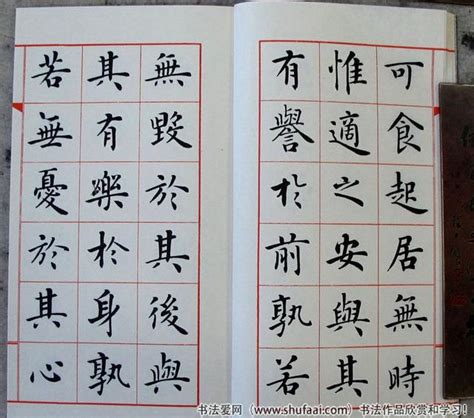 可食起居無時
惟適之安與其
有譽於前孰若
無毀於其後與
其有樂於身孰
若無憂於其心
书法爱网（www.shufaai.com）书法作品欣赏和学习！